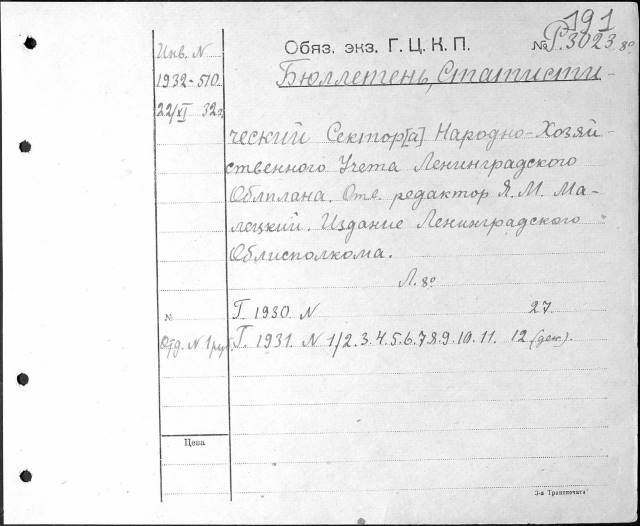 191
Обяз. экз. Г. Ц. К. П. № Р.3023 8º
Инв. N
1932-510
22/XI 32г.
Бюллетень, Статисти-
ческий Сектор[а] Народно-Хозяй-
ственного Учета Ленинградского
Облплана. Отв. редактор Я. М. Ма-
лецкий. Издание Ленинградского
Облисполкома.
Л. 8º
№ Г. 1930. N 27.
Отд. N 1 руб. Г. 1931. N 1/2. 3. 4. 5. 6. 7. 8. 9. 10. 11. 12 (дек).
Цена
3-я Транспечати